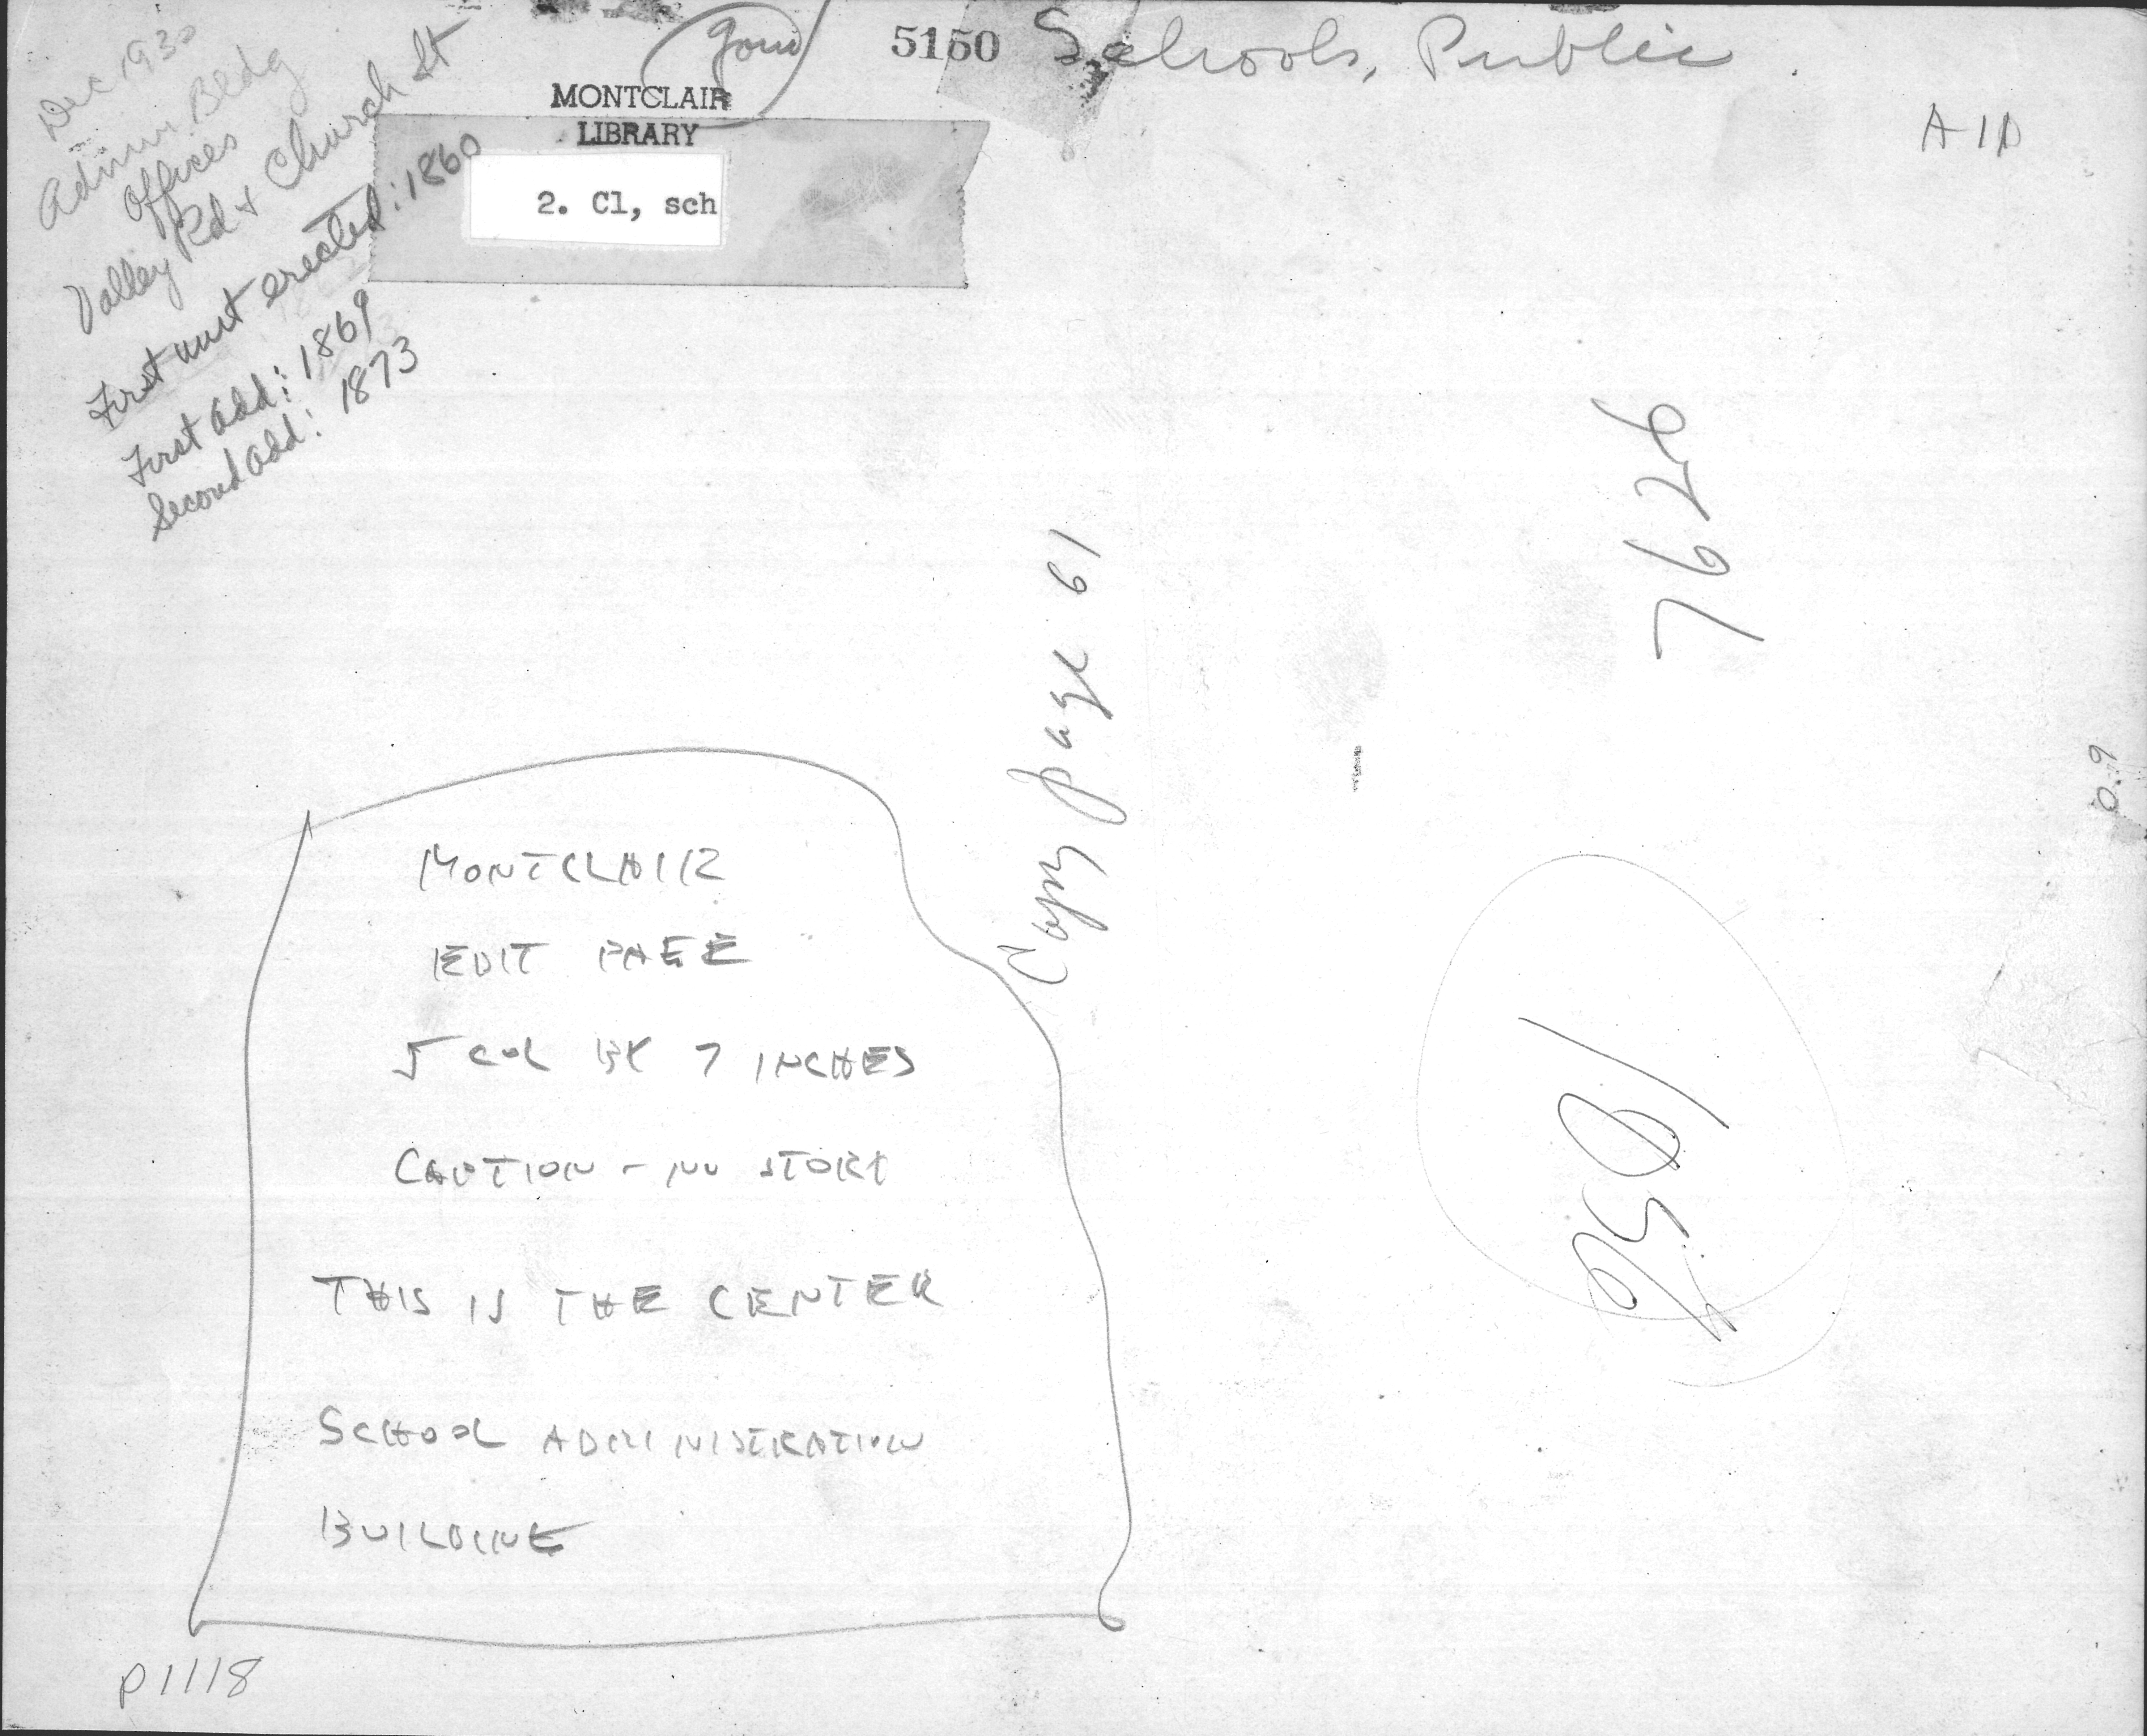 Dec 1930
Admin. Bldg
Offices
Valley Rd + Church St
First unit erected: 1860
First add: 1869
Second add: 1873
5150 Schools, Public
MONTCLAIR
LIBRARY
2. Cl, sch
A1D
7626
Copy page 61
MONTCLAIR
EDIT PAGE
5 COL BY 7 INCHES
CAPTION - NO STORY
THIS IS THE CENTER
SCHOOL ADMINISTRATION
BUILDING
P1118